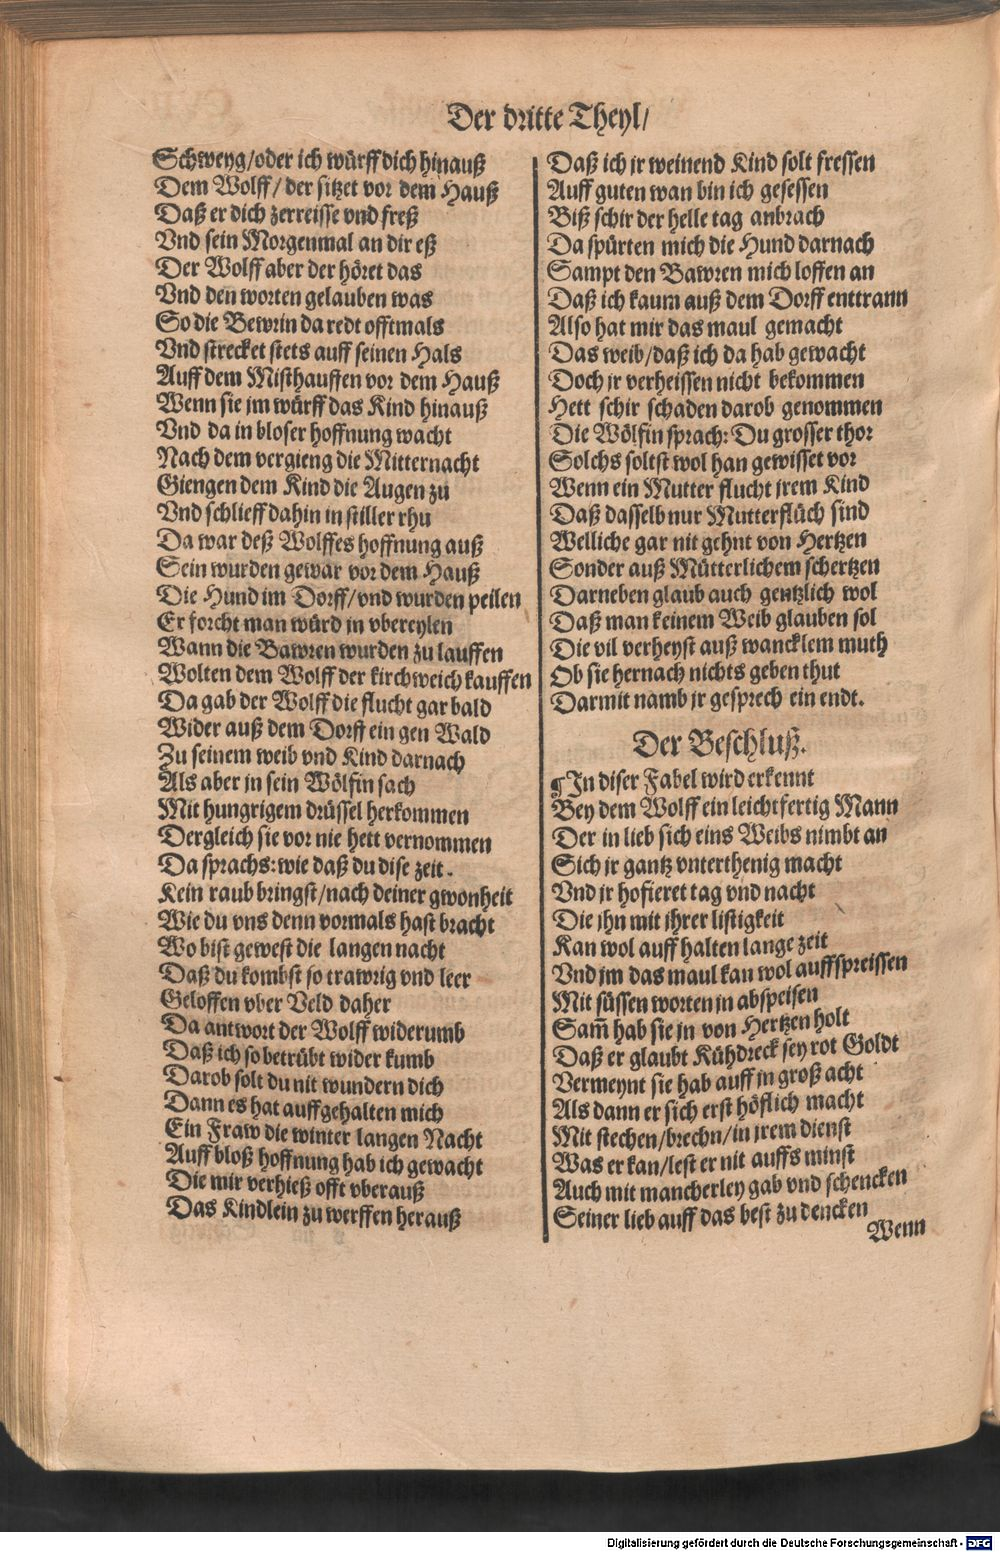 Der dritte Theyl/
Schweyg/oder ich würff dich hinauß
Dem Wolff/ der sitzet vor dem Hauß
Daß er dich zerreisse vnd freß
Vnd sein Morgenmal an dir eß
Der Wolff aber der höret das
Vnd den worten gelauben was
So die Bewrin da redt offtmals
Vnd strecket stets auff seinen Hals
Auff dem Misthauffen vor dem Hauß
Wenn sie jm würff das Kind hinauß
Vnd da in bloser hoffnung wacht
Nach dem vergieng die Mitternacht
Giengen dem Kind die Augen zu
Vnd schlieff dahin in stiller rhu
Da war deß Wolffes hoffnung auß
Sein wurden gewar vor dem Hauß
Die Hund im Dorff/vnd wurden peilen
Er forcht man würd jn vbereylen
Wann die Bawren wurden zu lauffen
Wolten dem Wolff der kirchweich kauffen
Da gab der Wolff die flucht gar bald
Wider auß dem Dorff ein gen Wald
Zu seinem weib vnd Kind darnach
Als aber jn sein Wölfin sach
Mit hungrigem drüssel herkommen
Dergleich sie vor nie hett vernommen
Da sprachs: wie daß du dise zeit.
Kein raub bringst/nach deiner gwonheit
Wie du vns denn vormals hast bracht
Wo bist gewest die langen nacht
Daß du kombst so trawrig vnd leer
Geloffen vber Veld daher
Da antwort der Wolff widerumb
Daß ich so betrübt wider kumb
Darob solt du nit wundern dich
Dann es hat auffgehalten mich
Ein Fraw die winter langen Nacht
Auff bloß hoffnung hab ich gewacht
Die mir verhieß offt vberauß
Das Kindlein zu werffen herauß
Daß ich jr weinend Kind solt fressen
Auff guten wan bin ich gesessen
Biß schir der helle tag anbrach
Da spürten mich die Hund darnach
Sampt den Bawren mich loffen an
Daß ich kaum auß dem Dorff enttrann
Also hat mir das maul gemacht
Das weib/daß ich da hab gewacht
Doch jr verheissen nicht bekommen
Hett schir schaden darob genommen
Die Wölfin sprach: Du grosser thor
Solchs soltst wol han gewisset vor
Wenn ein Mutter flucht jrem Kind
Daß dasselb nur Mutterflüch sind
Welliche gar nit gehnt von Hertzen
Sonder auß Mütterlichem schertzen
Darneben glaub auch gentzlich wol
Daß man keinem Weib glauben sol
Die vil verheyst auß wancklem muth
Ob sie hernach nichts geben thut
Darmit namb jr gesprech ein endt.
Der Beschluß.
¶ In diser Fabel wird erkennt
Bey dem Wolff ein leichtfertig Mann
Der in lieb sich eins Weibs nimbt an
Sich jr gantz vnterthenig macht
Vnd jr hofieret tag vnd nacht
Die jhn mit jhrer listigkeit
Kan wol auff halten lange zeit
Vnd jm das maul kan wol auffspreissen
Mit süssen worten jn abspeisen
Sam̃ hab sie jn von Hertzen holt
Daß er glaubt Kühdreck sey rot Goldt
Vermeynt sie hab auff jn groß acht
Als dann er sich erst höflich macht
Mit stechen/brechn/in jrem dienst
Was er kan/lest er nit auffs minst
Auch mit mancherley gab vnd schencken
Seiner lieb auff das best zu dencken
Wenn
Digitalisierung gefördert durch die Deutsche Forschungsgemeinschaft - DFG